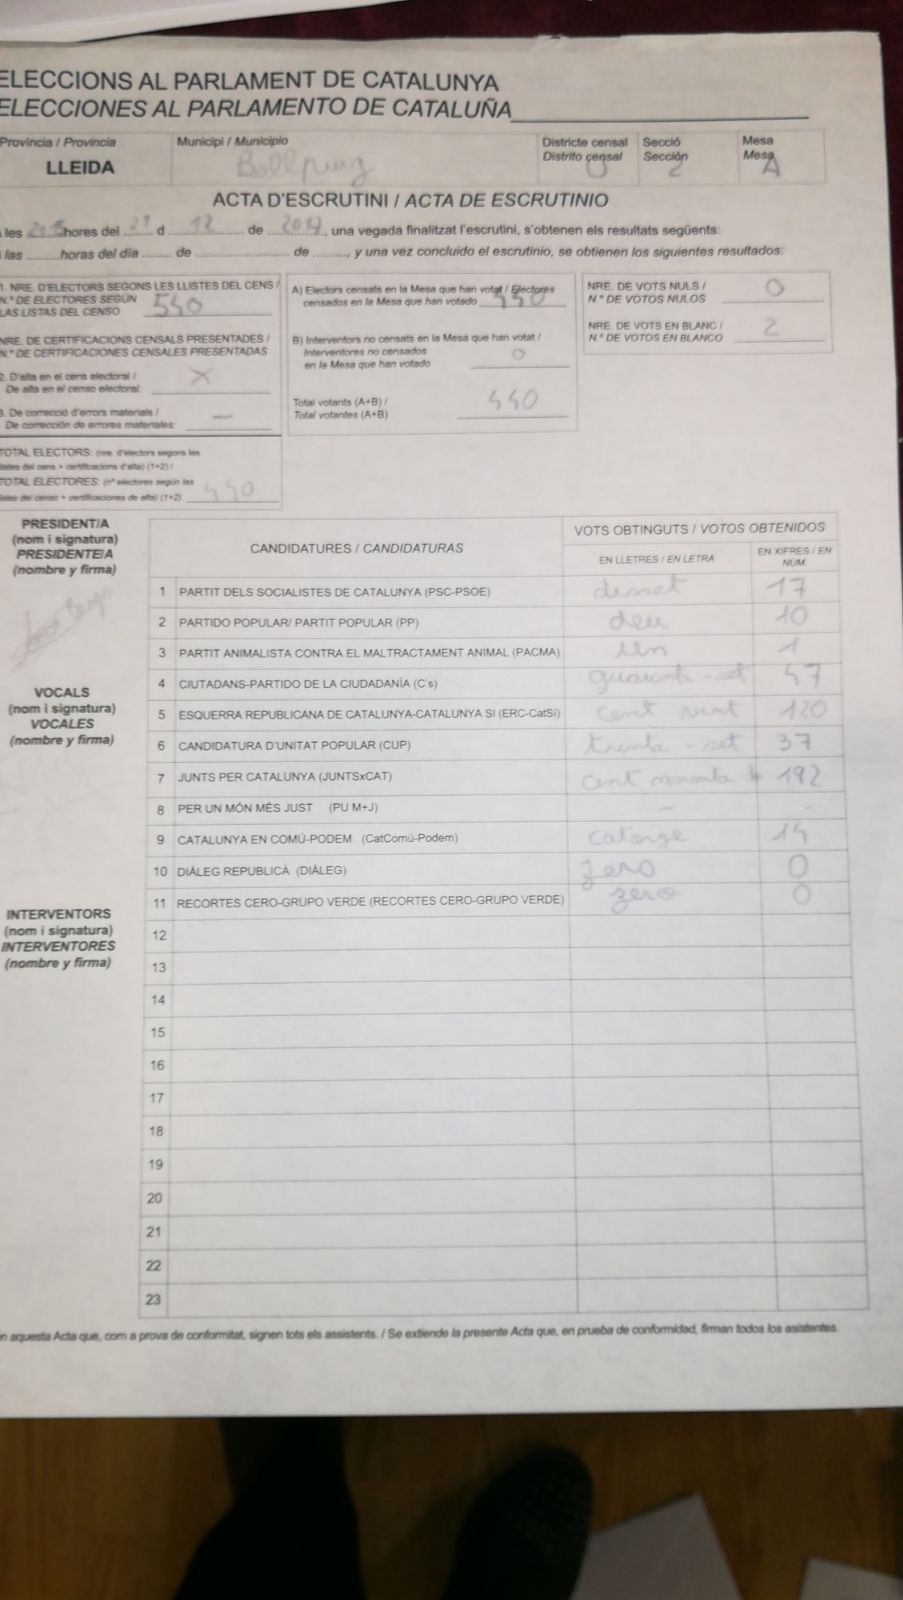 ELECCIONS AL PARLAMENT DE CATALUNYA
ELECCIONES AL PARLAMENTO DE CATALUÑA
Provincia / Provincia
LLEIDA
Municipi / Municipio
Bellpuig
Districte censal
Distrito censal
Secció
Sección
2
Mesa
Mesa
A
ACTA D'ESCRUTINI / ACTA DE ESCRUTINIO
les hores del 21 d 12 de 2017, una vegada finalitzat l'escrutini, s'obtenen els resultats següents:
las horas del día de de, y una vez concluido el escrutinio, se obtienen los siguientes resultados:
1. NRE. D'ELECTORS SEGONS LES LLISTES DEL CENS /
N.º DE ELECTORES SEGÚN
LAS LISTAS DEL CENSO 540
NRE. DE CERTIFICACIONS CENSALS PRESENTADES /
N.º DE CERTIFICACIONES CENSALES PRESENTADAS
2. D'alta en el cens electoral /
De alta en el censo electoral: X
3. De correcció d'errors materials /
De corrección de errores materiales: —
TOTAL ELECTORS: (nre. d'electors segons les
llistes del cens + certificacions d'alta) (1+2) /
TOTAL ELECTORES: (nº electores según las
listas del censo + certificaciones de alta) (1+2) 440
A) Electors censats en la Mesa que han votat / Electores
censados en la Mesa que han votado 440
B) Interventors no censats en la Mesa que han votat /
Interventores no censados
en la Mesa que han votado 0
Total votants (A+B) /
Total votantes (A+B) 440
NRE. DE VOTS NULS /
N.º DE VOTOS NULOS 0
NRE. DE VOTS EN BLANC /
N.º DE VOTOS EN BLANCO 2
PRESIDENT/A
(nom i signatura)
PRESIDENTE/A
(nombre y firma)
VOCALS
(nom i signatura)
VOCALES
(nombre y firma)
INTERVENTORS
(nom i signatura)
INTERVENTORES
(nombre y firma)
CANDIDATURES / CANDIDATURAS
VOTS OBTINGUTS / VOTOS OBTENIDOS
EN LLETRES / EN LETRA
EN XIFRES / EN
NÚM.
1 PARTIT DELS SOCIALISTES DE CATALUNYA (PSC-PSOE) disset 17
2 PARTIDO POPULAR/ PARTIT POPULAR (PP) deu 10
3 PARTIT ANIMALISTA CONTRA EL MALTRACTAMENT ANIMAL (PACMA) un 1
4 CIUTADANS-PARTIDO DE LA CIUDADANÍA (C's) quaranta-set 47
5 ESQUERRA REPUBLICANA DE CATALUNYA-CATALUNYA SÍ (ERC-CatSí) cent vint 120
6 CANDIDATURA D'UNITAT POPULAR (CUP) trenta-set 37
7 JUNTS PER CATALUNYA (JUNTSxCAT) cent noranta 192
8 PER UN MÓN MÉS JUST (PU M+J) - -
9 CATALUNYA EN COMÚ-PODEM (CatComú-Podem) catorze 14
10 DIÀLEG REPUBLICÀ (DIÀLEG) zero 0
11 RECORTES CERO-GRUPO VERDE (RECORTES CERO-GRUPO VERDE) zero 0
12
13
14
15
16
17
18
19
20
21
22
23
aquesta Acta que, com a prova de conformitat, signen tots els assistents. / Se extiende la presente Acta que, en prueba de conformidad, firman todos los asistentes.